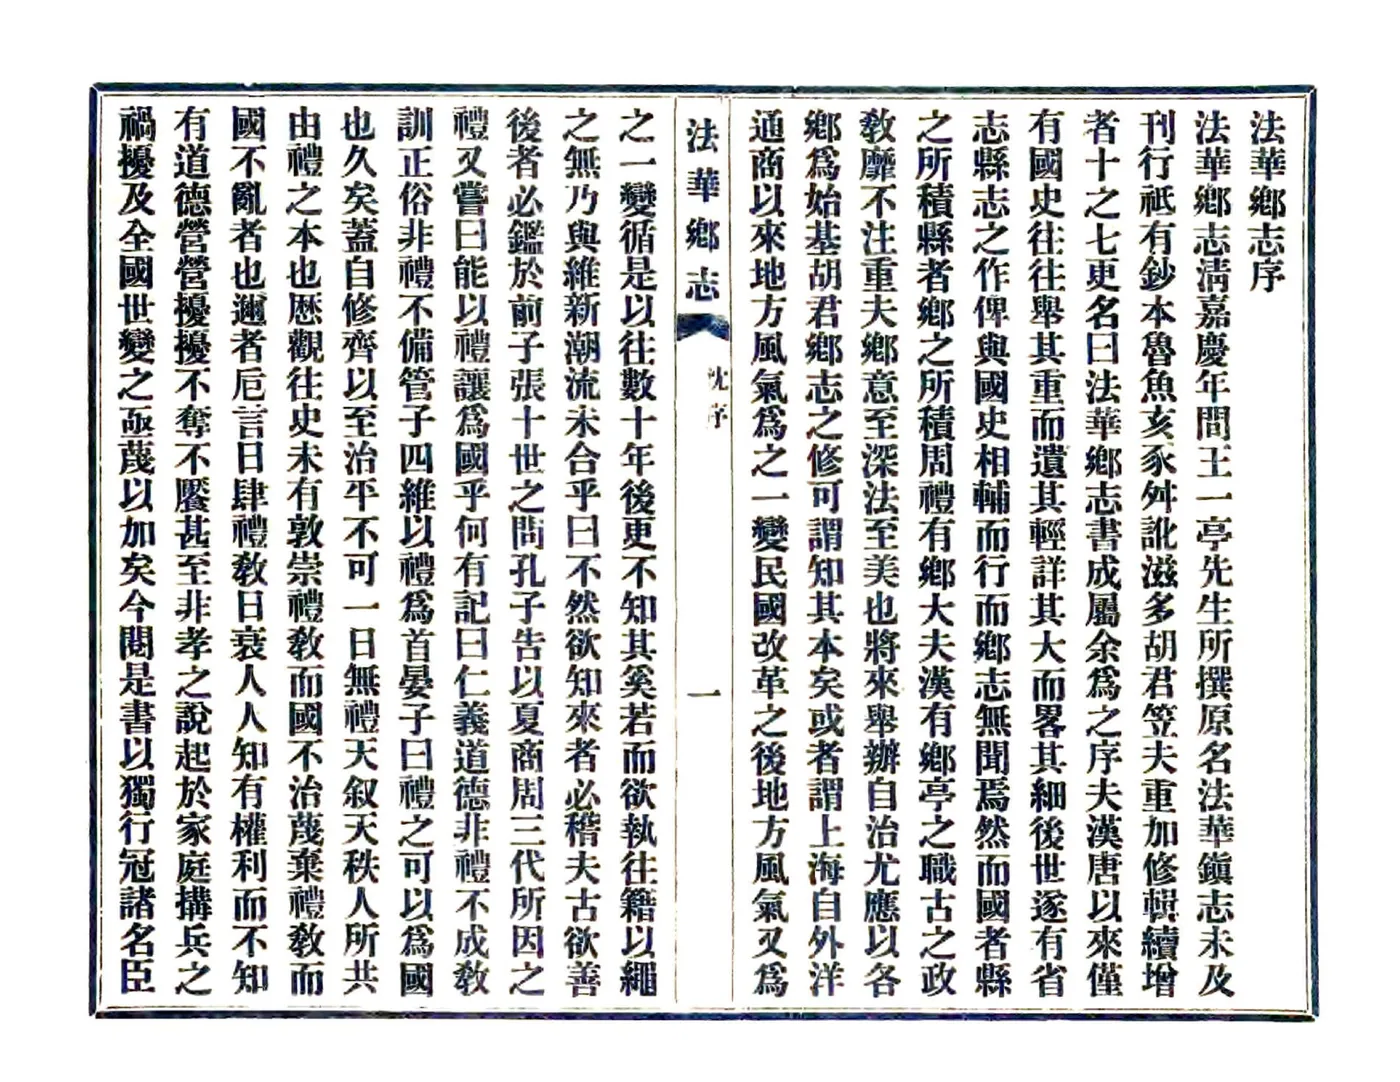 法華鄉志序
法華鄉志淸嘉慶年間王一亭先生所撰原名法華鎭志未及
刊行祇有鈔本魯魚亥豕舛訛滋多胡君笠夫重加修輯續增
者十之七更名曰法華鄉志書成屬余爲之序夫漢唐以來僅
有國史往往舉其重而遺其輕詳其大而畧其細後世遂有省
志縣志之作俾與國史相輔而行而鄉志無聞焉然而國者縣
之所積縣者鄉之所積周禮有鄉大夫漢有鄉亭之職古之政
敎靡不注重夫鄉意至深法至美也將來舉辦自治尤應以各
鄉爲始基胡君鄉志之修可謂知其本矣或者謂上海自外洋
通商以來地方風氣爲之一變民國改革之後地方風氣又爲
法華鄉志
沈序
一
之一變循是以往數十年後更不知其奚若而欲執往籍以繩
之無乃與維新潮流未合乎曰不然欲知來者必稽夫古欲善
後者必鑑於前子張十世之問孔子告以夏商周三代所因之
禮又嘗曰能以禮讓爲國乎何有記曰仁義道德非禮不成敎
訓正俗非禮不備管子四維以禮爲首晏子曰禮之可以爲國
也久矣蓋自修齊以至治平不可一日無禮天叙天秩人所共
由禮之本也歷觀往史未有敦崇禮敎而國不治蔑棄禮敎而
國不亂者也邇者巵言日肆禮敎日衰人人知有權利而不知
有道德營營擾擾不奪不饜甚至非孝之說起於家庭搆兵之
禍擾及全國世變之亟蔑以加矣今閱是書以獨行冠諸名臣